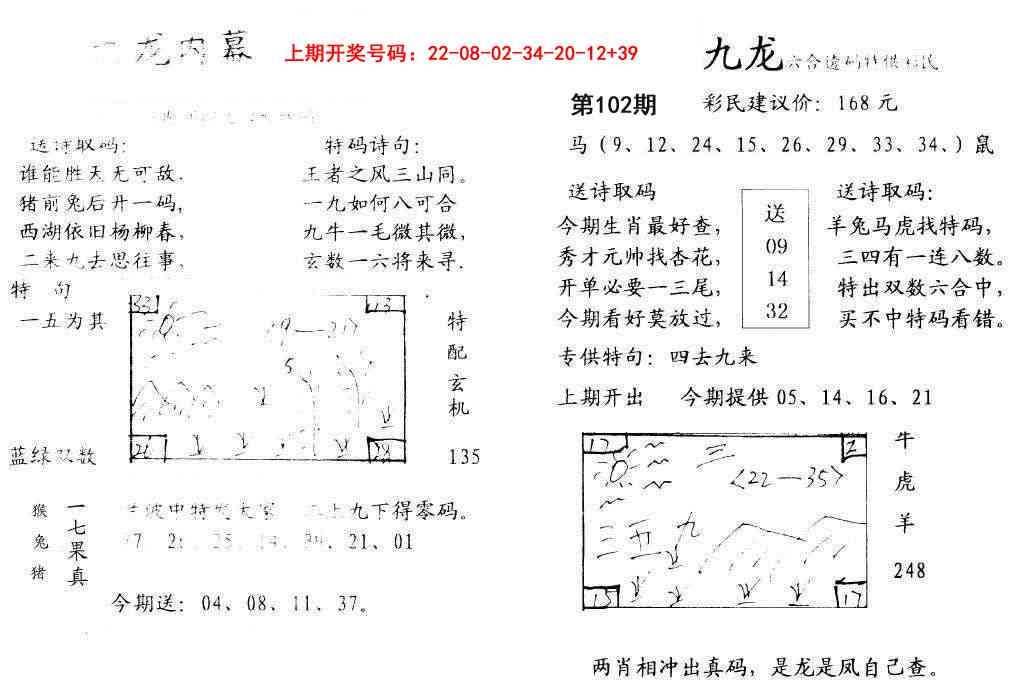 九龙内幕
上期开奖号码：22-08-02-34-20-12+39
送诗取码：
谁能胜天无可敌，
猪前兔后升一码，
西湖依旧杨柳春，
二来九去思往事，
特码诗句：
王者之风三山同。
一九如何八可合
九牛一毛微其微，
玄数一六将来寻.
特 句
一五为其
蓝绿双数
33
13
〈9—21〉
5
28
特
配
玄
机
135
猴
兔
猪
一
七
果
真
九下得零码。
21、01
今期送：04、08、11、37。
九龙六合透码特供彩民
第102期
彩民建议价：168元
马（9、12、24、15、26、29、33、34、）鼠
送诗取码
今期生肖最好查，
秀才元帅找杏花，
开单必要一三尾，
今期看好莫放过，
送
09
14
32
送诗取码：
羊兔马虎找特码，
三四有一连八数。
特出双数六合中，
买不中特码看错。
专供特句：四去九来
上期开出 今期提供05、14、16、21
17
2
三
〈22—35〉
三五九
15
17
牛
虎
羊
248
两肖相冲出真码，是龙是凤自己查。